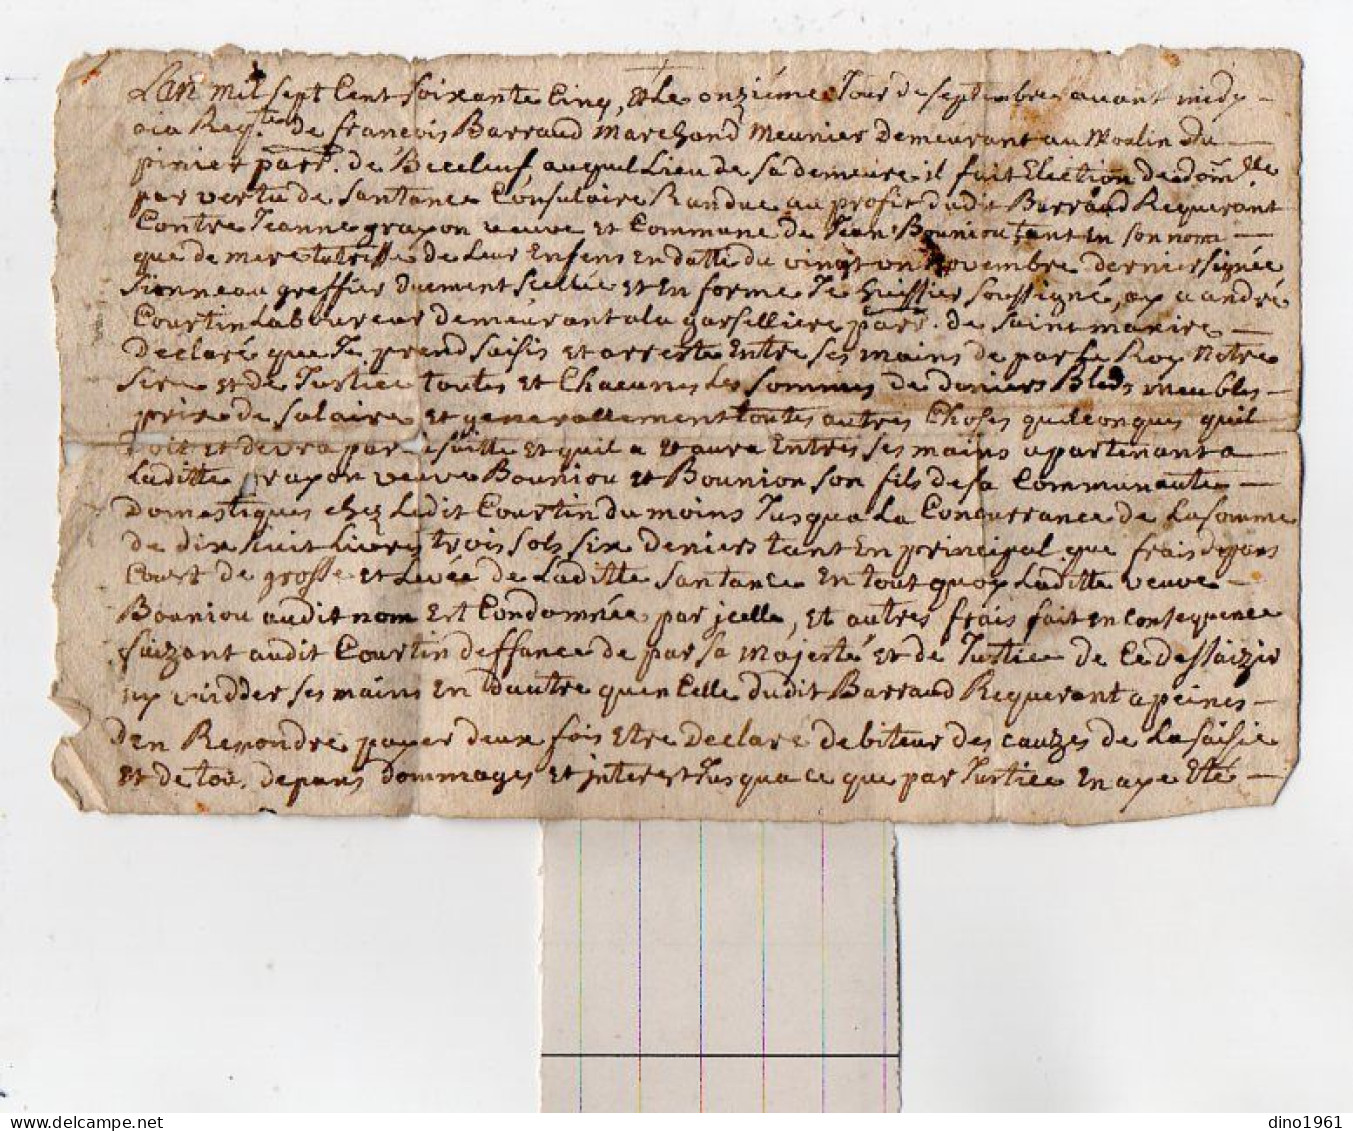 Lan mil sept Cent soixante Cinq, Et Le onziéme Jour de septembre avant midy
a la Reqte de francois Barraud Marchand Meunier demeurant au Moulin du
pinier parr. de Beceleuf auquel Lieu de sa demeure il fait Election de domlle
par vertu de Santance Consulaire Randue au profit dudit Barraud Requerant
Contre Jeanne grayon veuve et Commune de Jean Bouniou, tant en son nom
que de mere tutrisse de Leur Enfens En datte du vingt un Novembre dernier signée
Sionneau greffier duement scellée et En forme Je huissier soussigné, ay a andré
Courtin Laboureur demeurant a la garselliere parr. de saint maxire
declaré que Je prend saisis et arreste Entre ses mains de par Le Roy Notre
Sire et de Justice toutes et Chacunes Les sommes de deniers Bleds meubles
prix de salaire et generallement toutes autres Choses quelconques quil
doit et devra par saitte et quil a et aura Entres ses mains apartenant a
Laditte grayon veuve Bouniou et Bouniou son fils de sa Communauté
domestiques chez Ledit Courtin du moins Jusqua La Concurrance de La somme
de dix huit Livres trois sols six deniers tant En principal que frais depans
Coust de grosse et Levée de Laditte Santance En tout quoy Laditte veuve
Bouniou audit nom Est Condamnée par jcelle, Et autres frais fait en Consequence
faizant audit Courtin deffance de par sa Majesté et de Justice de Ce dessaizir
ny vuidder ses mains En dautre quen Celle dudit Barraud Requerant a peines
den Repondre payer deux fois Etre declaré debiteur des cauzes de La saisie
et de tou. depans dommages et jnterest Jusqua ce que par Justice En aye Eté
dino1961